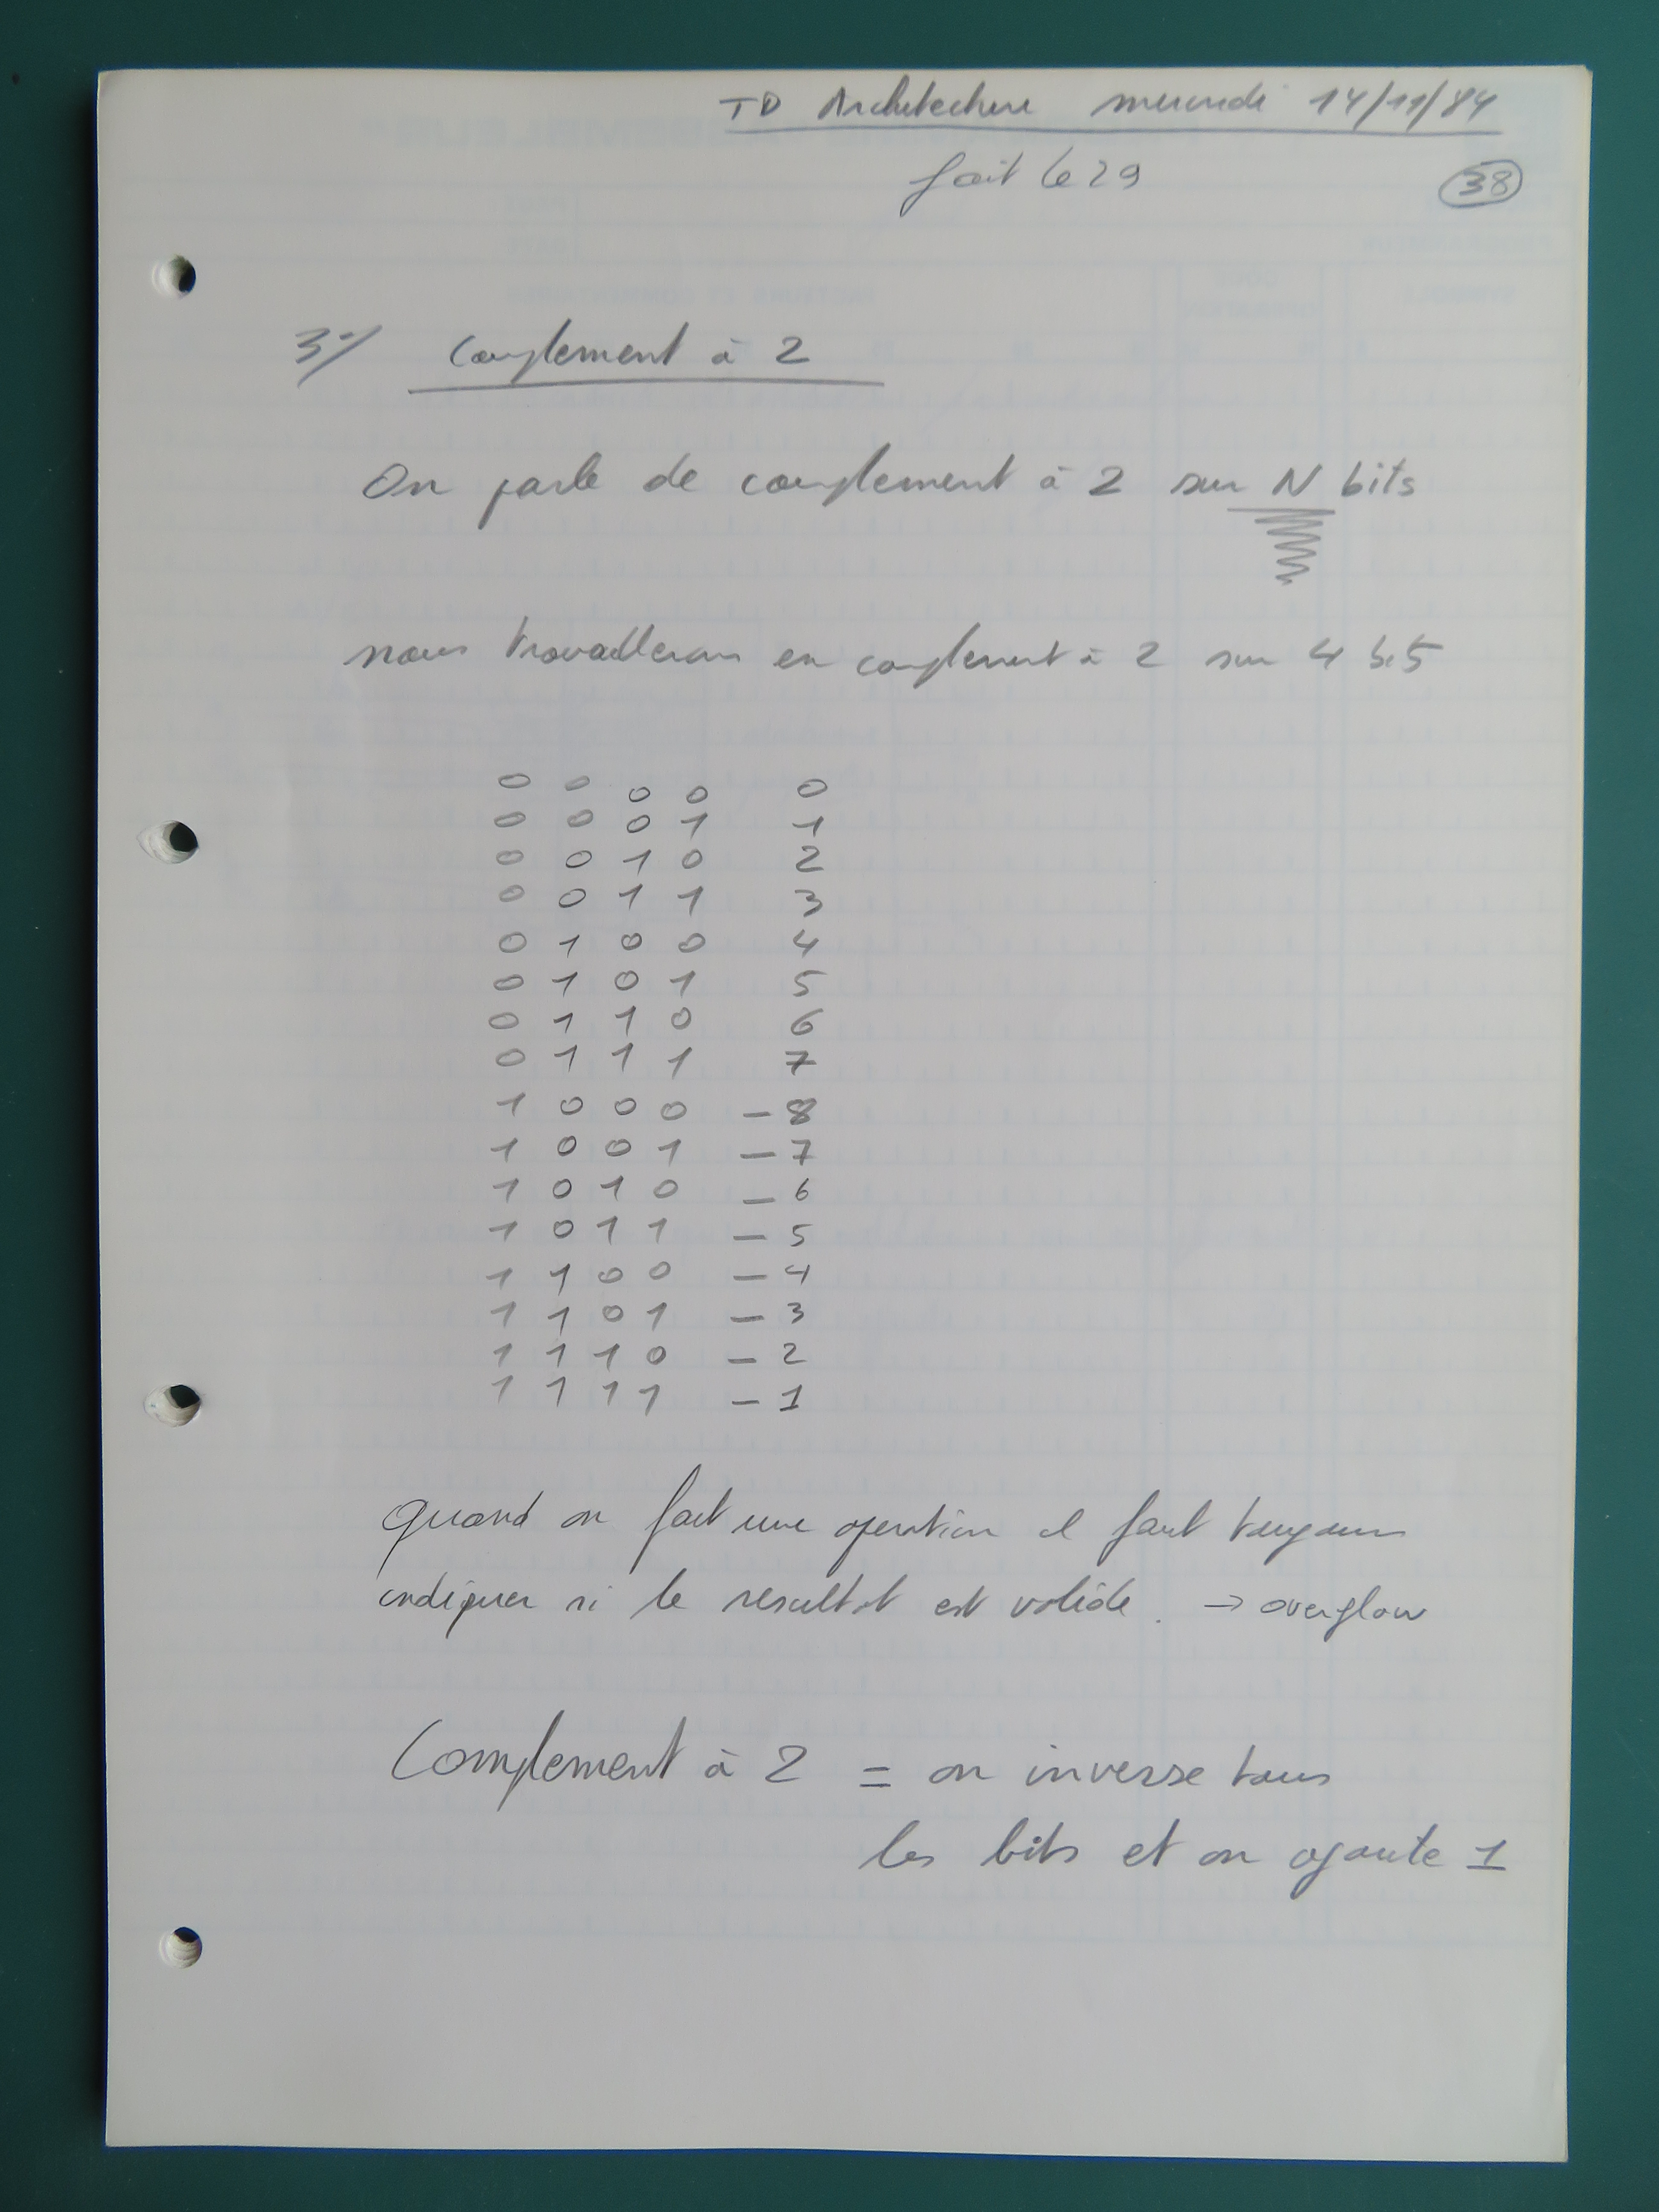 TD Architecture mercredi 14/11/84
fait le 29
38
3°/ Complement à 2
On parle de complement à 2 sur N bits
nous travaillerons en complement à 2 sur 4 bits
0 0 0 0 0
0 0 0 1 1
0 0 1 0 2
0 0 1 1 3
0 1 0 0 4
0 1 0 1 5
0 1 1 0 6
0 1 1 1 7
1 0 0 0 -8
1 0 0 1 -7
1 0 1 0 -6
1 0 1 1 -5
1 1 0 0 -4
1 1 0 1 -3
1 1 1 0 -2
1 1 1 1 -1
quand on fait une operation il faut toujours
indiquer si le resultat est valide. → overflow
Complement à 2 = on inverse tous
les bits et on ajoute 1